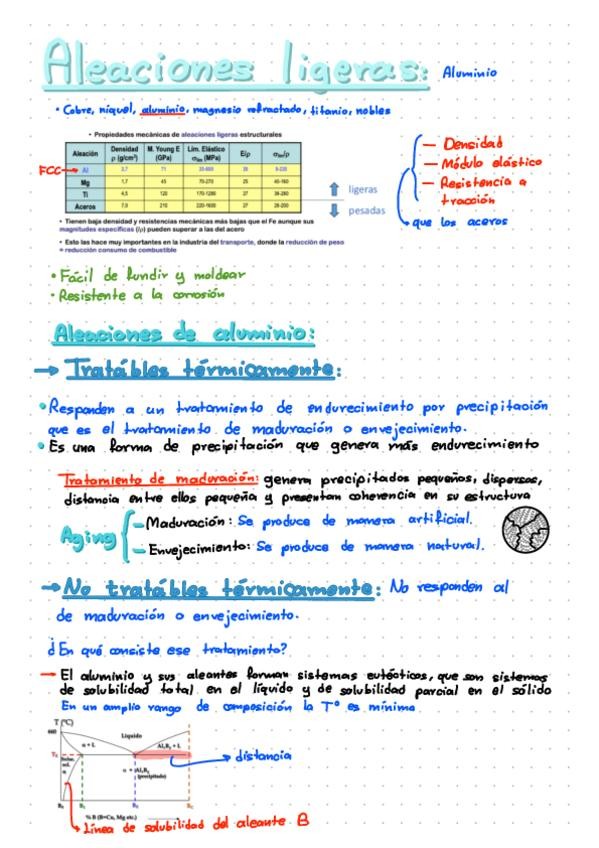 Aleaciones ligeras: Aluminio
• Cobre, níquel, aluminio, magnesio refractado, titanio, nobles
• Propiedades mecánicas de aleaciones ligeras estructurales
Aleación Densidad ρ (g/cm³) M. Young E (GPa) Lim. Elástico (MPa) E/ρ
FCC → Al 2,7 71 25
Mg 1,7 45 70-270 25 40-160
Ti 4,5 120 170-1280 27 38-280
Aceros 7,9 210 220-1600 27 28-200
ligeras
pesadas
— Densidad
— Módulo elástico
— Resistencia a
tracción
que los aceros
• Tienen baja densidad y resistencias mecánicas más bajas que el Fe aunque sus
magnitudes específicas (/ρ) pueden superar a las del acero
• Esto las hace muy importantes en la industria del transporte, donde la reducción de peso
= reducción consumo de combustible
• Fácil de fundir y moldear
• Resistente a la corrosión
Aleaciones de aluminio:
→ Tratábles térmicamente:
• Responden a un tratamiento de endurecimiento por precipitación
que es el tratamiento de maduración o envejecimiento.
• Es una forma de precipitación que genera más endurecimiento
Tratamiento de maduración: genera precipitados pequeños, dispersos,
distancia entre ellos pequeña y presentan coherencia en su estructura
Aging
— Maduración: Se produce de manera artificial.
— Envejecimiento: Se produce de manera natural.
→ No tratábles térmicamente: No responden al
de maduración o envejecimiento.
¿En qué consiste ese tratamiento?
→ El aluminio y sus aleantes forman sistemas eutécticos, que son sistemas
de solubilidad total en el líquido y de solubilidad parcial en el sólido
En un amplio rango de composición la Tº es mínima
T (°C)
660
Líquido
α + L
→ distancia
(precipitado)
% B (B=Cu, Mg etc.)
Línea de solubilidad del aleante B